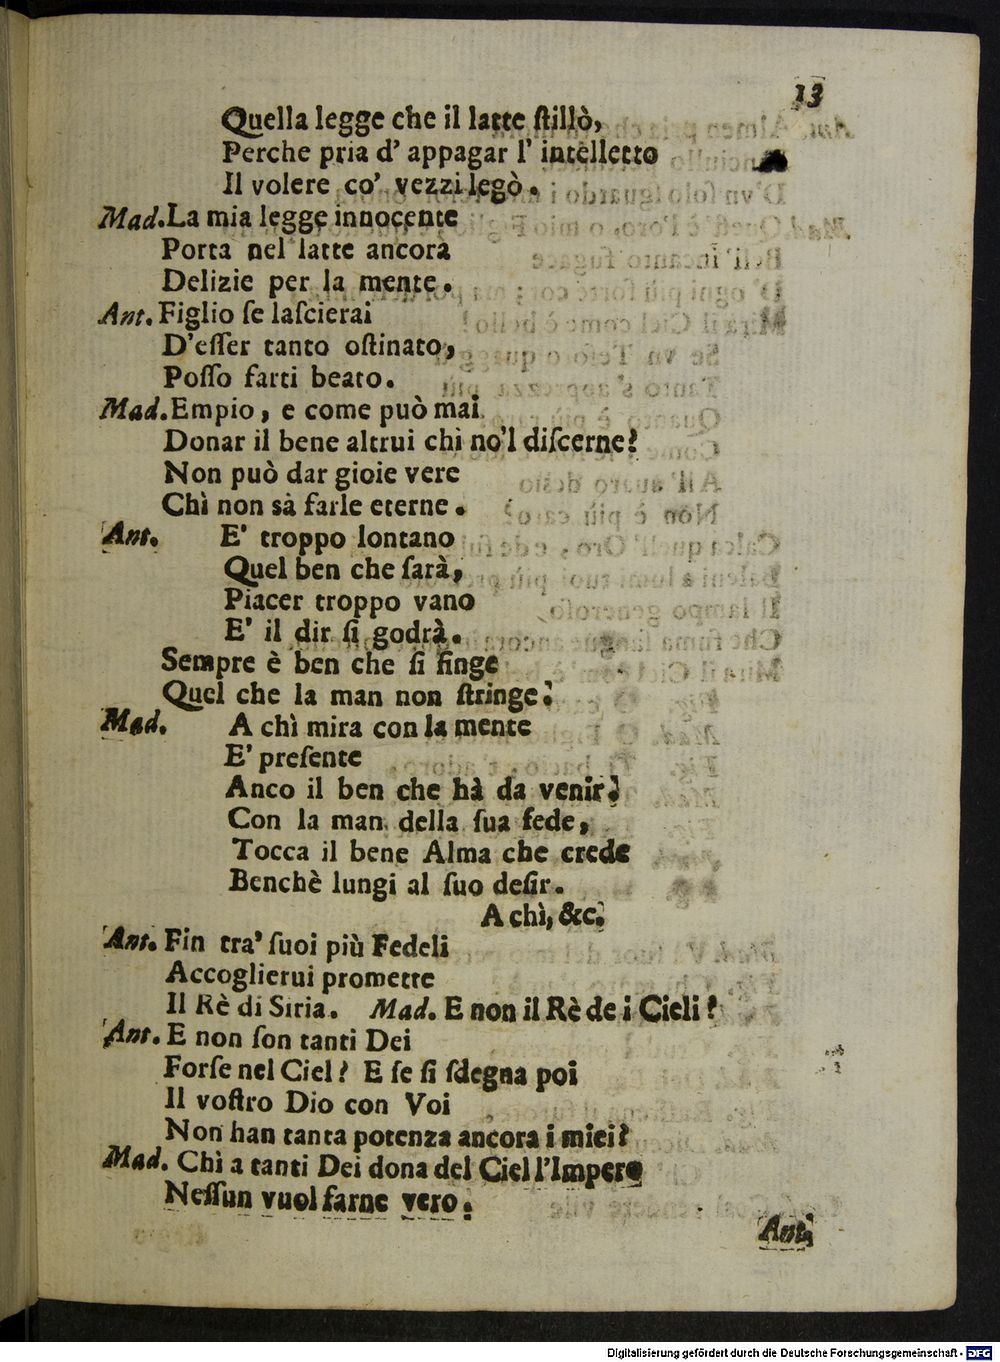 13
Quella legge che il latte ſtillò,
Perche pria d' appagar l' intelletto
Il volere co' vezzi legò.
Mad. La mia legge innocente
Porta nel latte ancora
Delizie per la mente.
Ant. Figlio ſe laſcierai
D'eſſer tanto oſtinato,
Poſſo farti beato.
Mad. Empio, e come può mai
Donar il bene altrui chi no'l diſcerne?
Non può dar gioie vere
Chì non sà farle eterne.
Ant. E' troppo lontano
Quel ben che ſarà,
Piacer troppo vano
E' il dir ſi godrà.
Sempre è ben che ſi finge
Quel che la man non ſtringe.
Mad. A chì mira con la mente
E' preſente
Anco il ben che hà da venir.
Con la man della ſua fede,
Tocca il bene Alma che crede
Benchè lungi al ſuo deſir.
A chì, &c.
Ant. Fin tra' ſuoi più Fedeli
Accoglierui promette
Il Rè di Siria. Mad. E non il Rè de i Cieli?
Ant. E non ſon tanti Dei
Forſe nel Ciel? E ſe ſi ſdegna poi
Il voſtro Dio con Voi
Non han tanta potenza ancora i miei?
Mad. Chì a tanti Dei dona del Ciel l'Impero
Neſſun vuol farne vero.
Ant.
Digitalisierung gefördert durch die Deutsche Forschungsgemeinschaft - DFG